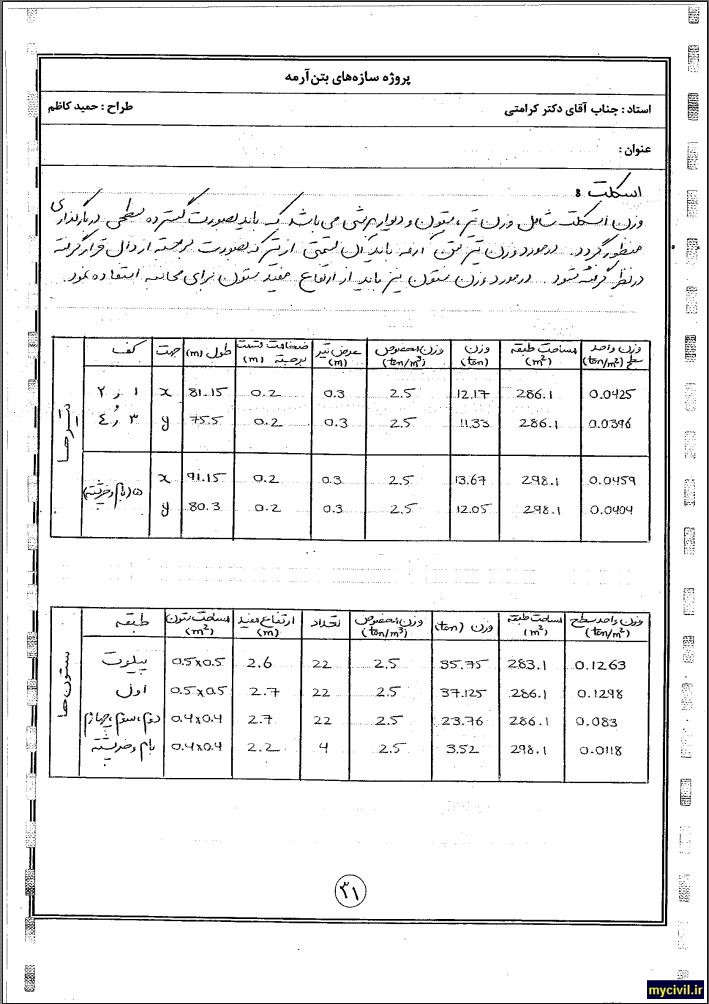 پروژه سازه‌های بتن‌آرمه
استاد : جناب آقای دکتر کرامتی طراح : حمید کاظم
عنوان :
اسکلت :
وزن اسکلت شامل وزن تیر، ستون و دیوار برشی می باشد که باید بصورت گسترده سطحی در بارگذاری
منظور گردد. درمورد وزن تیر بتن آرمه باید آن قسمتی از تیر که بصورت برجسته از دال قرار گرفته
در نظر گرفته شود. درمورد وزن ستون نیز باید از ارتفاع مفید ستون برای محاسبه استفاده نمود.
تیرها
کف جهت طول (m) ضخامت قسمت برجسته (m) عرض تیر (m) وزن مخصوص (ton/m³) وزن (ton) مساحت طبقه (m²) وزن واحد سطح (ton/m²)
۱ و ۲ x 81.15 0.2 0.3 2.5 12.17 286.1 0.0425
۳ و ۴ y 75.5 0.2 0.3 2.5 11.33 286.1 0.0396
۵ (بام و خرپشته) x 91.15 0.2 0.3 2.5 13.67 298.1 0.0459
y 80.3 0.2 0.3 2.5 12.05 298.1 0.0404
ستون ها
طبقه مساحت ستون (m²) ارتفاع مفید (m) تعداد وزن مخصوص (ton/m³) وزن (ton) مساحت طبقه (m²) وزن واحد سطح (ton/m²)
پیلوت 0.5x0.5 2.6 22 2.5 35.75 283.1 0.1263
اول 0.5x0.5 2.7 22 2.5 37.125 286.1 0.1298
دوم، سوم، چهارم 0.4x0.4 2.7 22 2.5 23.76 286.1 0.083
بام و خرپشته 0.4x0.4 2.2 4 2.5 3.52 298.1 0.0118
۳۱
mycivil.ir